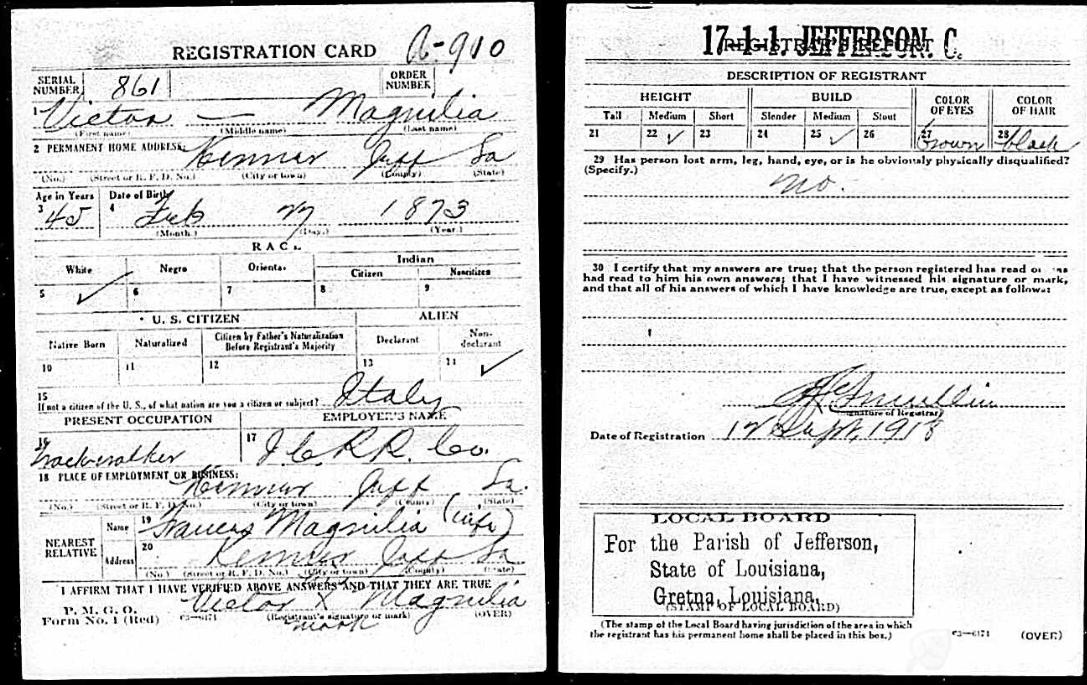 REGISTRATION CARD A-910
SERIAL NUMBER 861 ORDER NUMBER
1 Victor — Magnilia
(First name) (Middle name) (Last name)
2 PERMANENT HOME ADDRESS: Kenner Jeff La
(No.) (Street or R. F. D. No.) (City or town) (County) (State)
Age in Years Date of Birth
3 45 4 Feb 1873
(Month.) (Day.) (Year.)
RACE
White Negro Oriental Indian
Citizen Noncitizen
5 ✓ 6 7 8 9
U. S. CITIZEN ALIEN
Native Born Naturalized Citizen by Father's Naturalization Before Registrant's Majority Declarant Non-declarant
10 11 12 13 14 ✓
15 If not a citizen of the U. S., of what nation are you a citizen or subject? Italy
PRESENT OCCUPATION EMPLOYER'S NAME
16 Trackwalker 17 I.C.R.R. Co.
18 PLACE OF EMPLOYMENT OR BUSINESS:
Kenner Jeff La.
(No.) (Street or R. F. D. No.) (City or town) (County) (State)
NEAREST RELATIVE Name 19 Frances Magnilia (wife)
Address 20 Kenner Jeff La
(No.) (Street or R. F. D. No.) (City or town) (County) (State)
I AFFIRM THAT I HAVE VERIFIED ABOVE ANSWERS AND THAT THEY ARE TRUE
his
P. M. G. O. Victor X Magnilia
Form No. 1 (Red) 03—6171 (Registrant's signature or mark) (OVER)
mark
17-1-1. JEFFERSON. C.
REGISTRAR'S REPORT
DESCRIPTION OF REGISTRANT
HEIGHT BUILD COLOR OF EYES COLOR OF HAIR
Tall Medium Short Slender Medium Stout
21 22 ✓ 23 24 25 ✓ 26 27 Brown 28 black
29 Has person lost arm, leg, hand, eye, or is he obviously physically disqualified?
(Specify.) no.
30 I certify that my answers are true; that the person registered has read or has
had read to him his own answers; that I have witnessed his signature or mark,
and that all of his answers of which I have knowledge are true, except as follows:
(Signature of Registrar)
Date of Registration 12 Sept, 1918
LOCAL BOARD
For the Parish of Jefferson,
State of Louisiana,
Gretna, Louisiana.
(STAMP OF LOCAL BOARD)
(The stamp of the Local Board having jurisdiction of the area in which
the registrant has his permanent home shall be placed in this box.) 03—6171 (OVER)